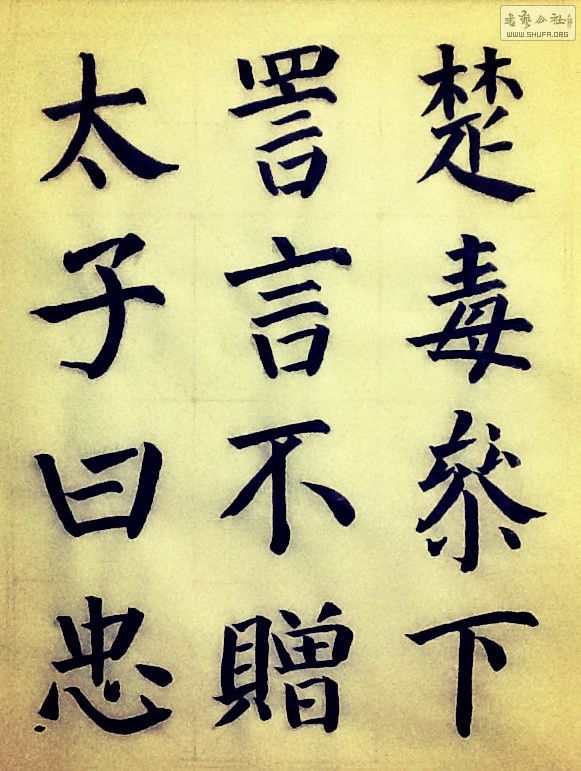 楚毒參下
詈言不贈
太子曰忠
书艺公社
WWW.SHUFA.ORG